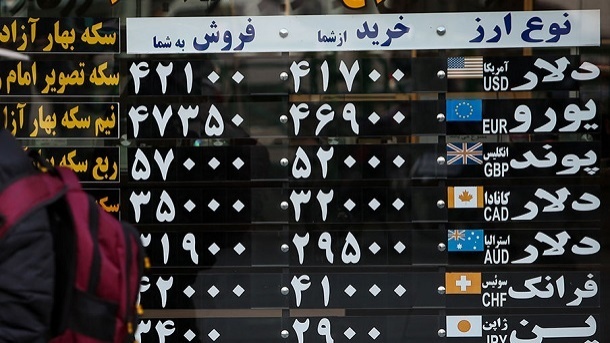 نوع ارز خرید از شما فروش به شما سکه بهار آزاد
دلار آمریکا USD ۴۱۷۰۰ ۴۲۱۰۰ سکه تصویر امام
یورو EUR ۴۶۹۰۰ ۴۷۳۵۰ نیم سکه بهار آزا
پوند انگلیس GBP ۵۲۰۰۰ ۵۷۰۰۰ ربع سکه
دلار کانادا CAD ۳۲۰۰۰ ۳۵۰۰۰ سکه
دلار استرالیا AUD ۲۹۵۰۰ ۳۱۹۰۰
فرانک سوئیس CHF ۴۱۰۰۰ ۴۲۰۰۰
ین ژاپن JPY ۲۹۰۰ ۳۴۰۰